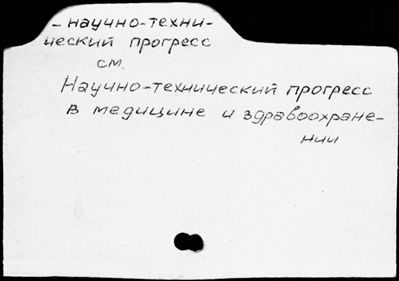 - научно-техни-
ческий прогресс
см.
Научно-технический прогресс
в медицине и здравоохране-
нии